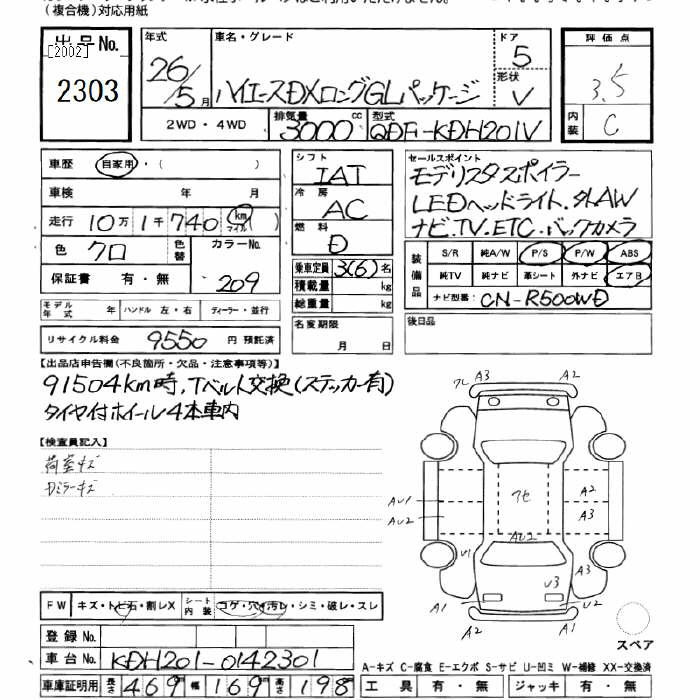 (複合機)対応用紙
出品No.
[2002]
2303
年式 車名・グレード ドア
26/5月 ハイエースDXロングGLパッケージ 5
形状 V
2WD・4WD 排気量 3000 cc 型式 QDF-KDH201V
評価点
3.5
内装 C
車歴 自家用・( )
車検 年 月
走行 10万1千740 km マイル
色 クロ 色替 カラーNo. 209
保証書 有・無
シフト
IAT
冷房
AC
燃料
D
乗車定員 3(6) 名
積載量 kg
総重量 kg
セールスポイント
モデリスタスポイラー
LEDヘッドライト.外AW
ナビ.TV.ETC.バックカメラ
装備品 S/R 純A/W P/S P/W ABS
純TV 純ナビ 革シート 外ナビ エアB
ナビ型番: CN-R500WD
モデル年式 年 ハンドル 左・右 ディーラー・並行
リサイクル料金 9550 円 預託済
名変期限
月 日
後日品
【出品店申告欄(不良箇所・欠品・注意事項等)】
91504km時,Tベルト交換(ステッカー有)
タイヤ付ホイール4本車内
【検査員記入】
荷室キズ
Rミラーキズ
フレ A3 A2
アセ
AU1 A2
AU2 A3
AU2
U1 A3
U3
A1 U2 A1
A2
スペア
FW キズ・トビ石・割レX シート内装 コゲ・穴・汚レ・シミ・破レ・スレ
登録No.
車台No. KDH201-0142301
A-キズ C-腐食 E-エクボ S-サビ U-凹ミ W-補修 XX-交換済
車庫証明用 長さ 469 幅 169 高さ 198 工具 有・無 ジャッキ 有・無